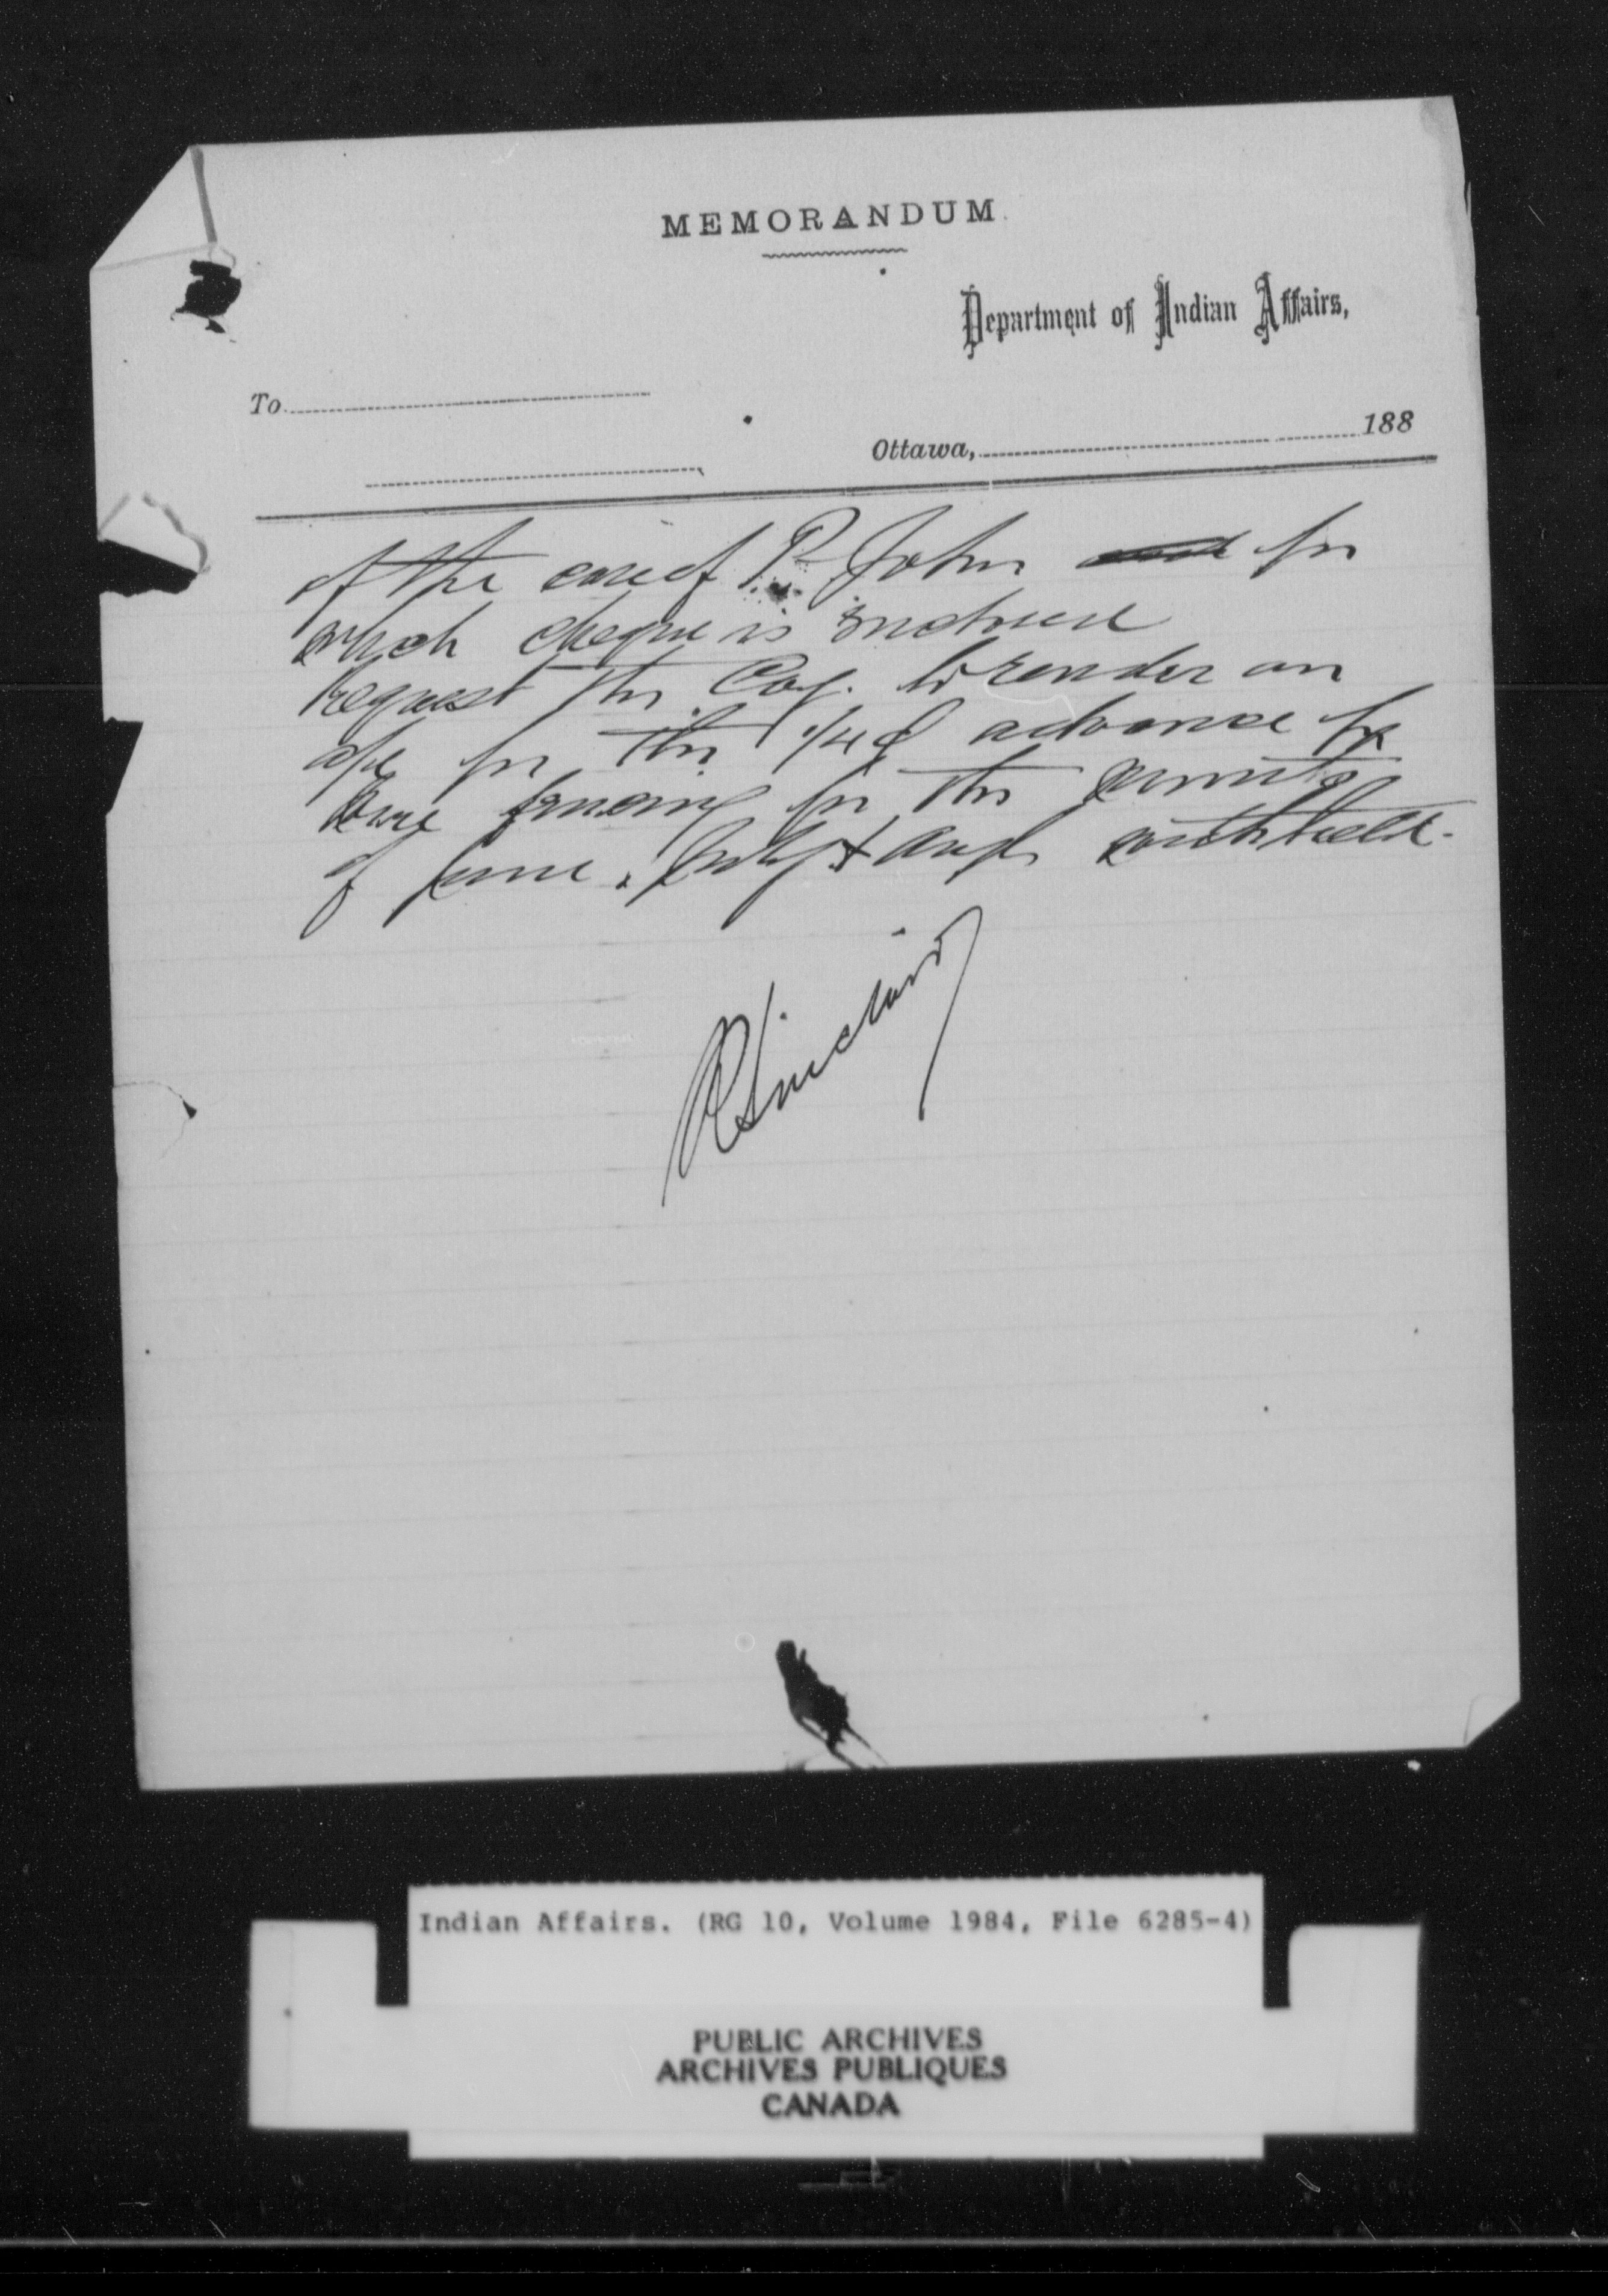 MEMORANDUM.
Department of Indian Affairs,
To
Ottawa, 188
of the case of P. John for
which cheque is enclosed
Request the Coy. to render an
a/c for the advance for
for the months
of June, July & Aug withheld.
R Sinclair
Indian Affairs. (RG 10, Volume 1984, File 6285-4)
PUBLIC ARCHIVES
ARCHIVES PUBLIQUES
CANADA